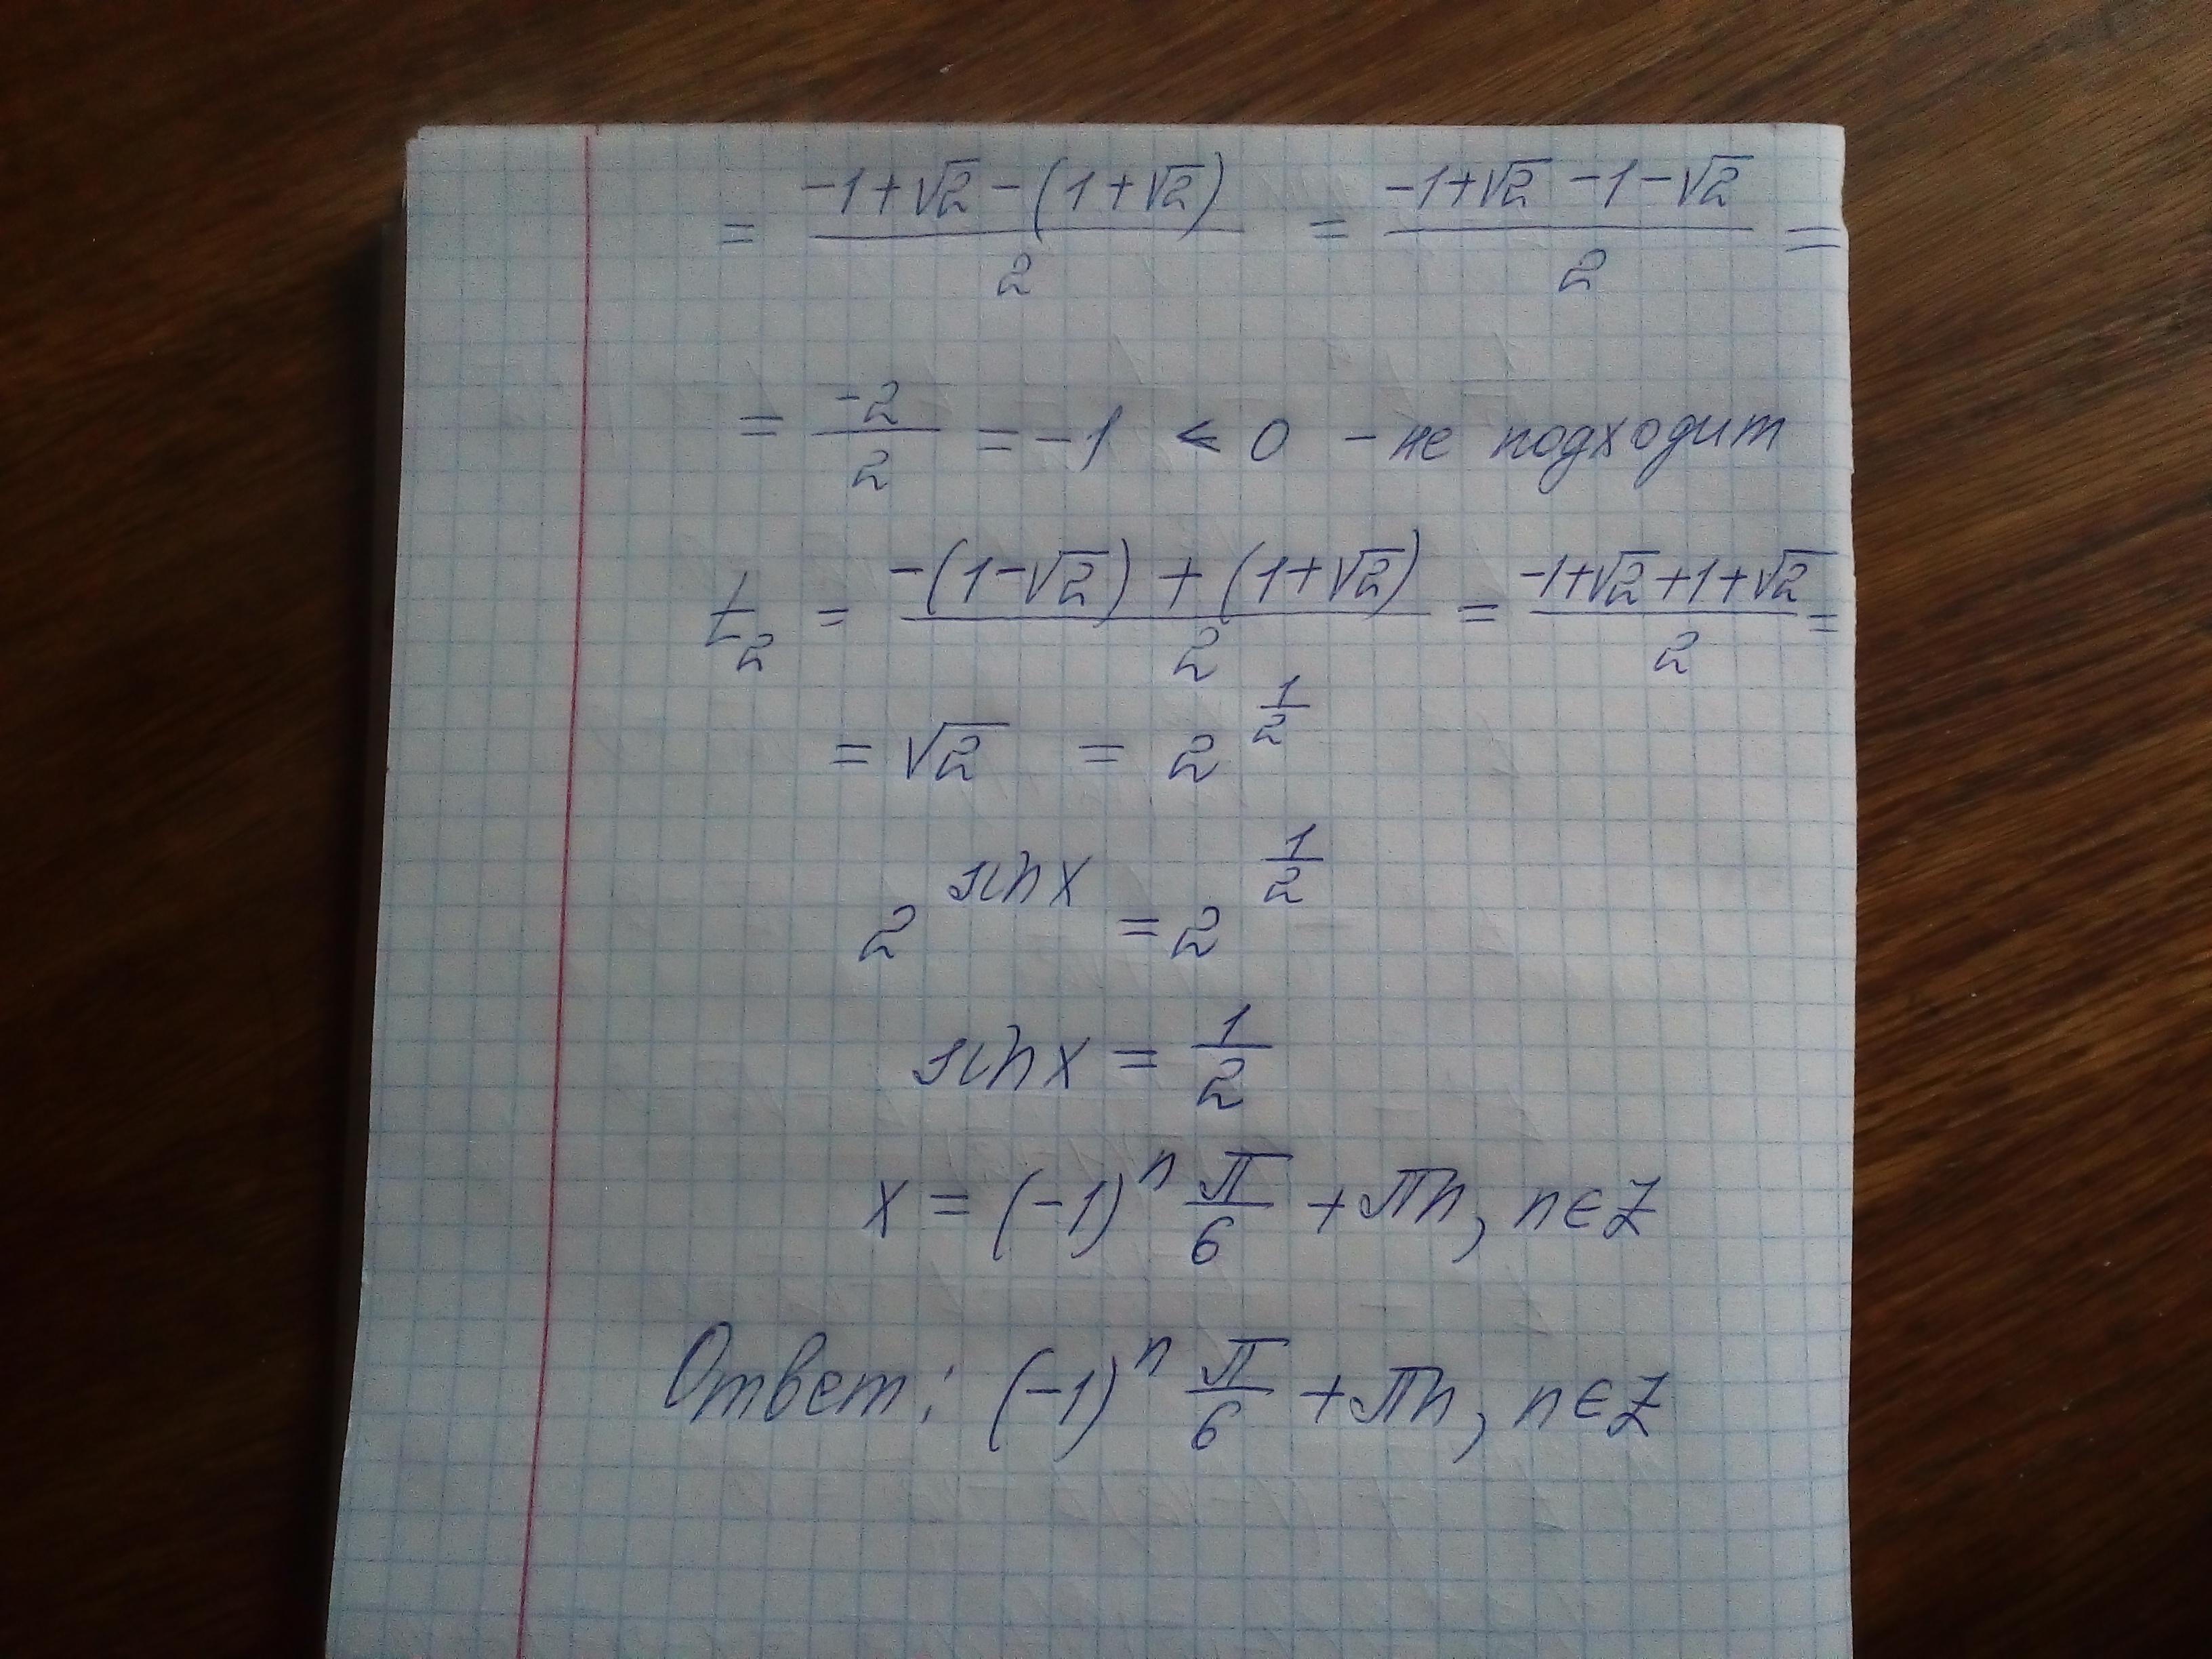 = (-1+√2 - (1+√2))/2 = (-1+√2 -1-√2)/2 =
= -2/2 = -1 < 0 - не подходит
t₂ = (-(1-√2) + (1+√2))/2 = (-1+√2+1+√2)/2 =
= √2 = 2^(1/2)
2^(sin x) = 2^(1/2)
sin x = 1/2
x = (-1)^n π/6 + πn, n∈Z
Ответ: (-1)^n π/6 + πn, n∈Z